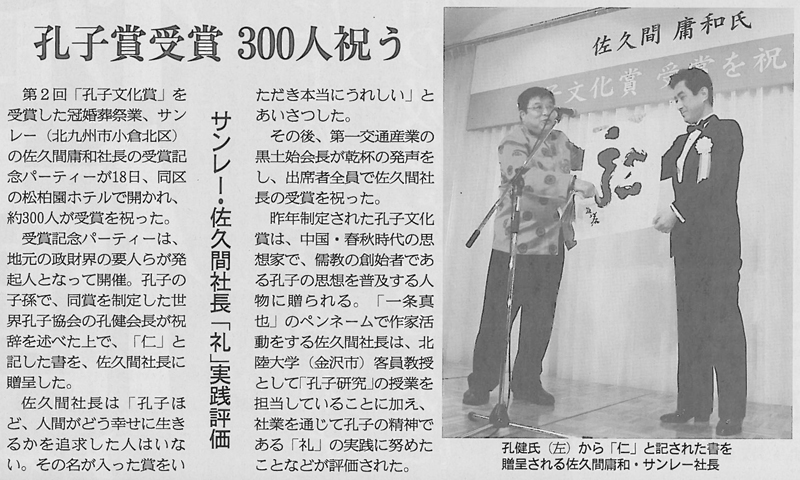 孔子賞受賞 300人祝う
サンレー・佐久間社長「礼」実践評価
第2回「孔子文化賞」を
受賞した冠婚葬祭業、サン
レー（北九州市小倉北区）
の佐久間庸和社長の受賞記
念パーティーが18日、同区
の松柏園ホテルで開かれ、
約300人が受賞を祝った。
受賞記念パーティーは、
地元の政財界の要人らが発
起人となって開催。孔子の
子孫で、同賞を制定した世
界孔子協会の孔健会長が祝
辞を述べた上で、「仁」と
記した書を、佐久間社長に
贈呈した。
佐久間社長は「孔子ほ
ど、人間がどう幸せに生き
るかを追求した人はいな
い。その名が入った賞をい
ただき本当にうれしい」と
あいさつした。
その後、第一交通産業の
黒土始会長が乾杯の発声を
し、出席者全員で佐久間社
長の受賞を祝った。
昨年制定された孔子文化
賞は、中国・春秋時代の思
想家で、儒教の創始者であ
る孔子の思想を普及する人
物に贈られる。「一条真
也」のペンネームで作家活
動をする佐久間社長は、北
陸大学（金沢市）客員教授
として「孔子研究」の授業を
担当していることに加え、
社業を通じて孔子の精神で
ある「礼」の実践に努めた
ことなどが評価された。
佐久間 庸和氏
子文化賞 受賞を祝
仁
孔健氏（左）から「仁」と記された書を
贈呈される佐久間庸和・サンレー社長